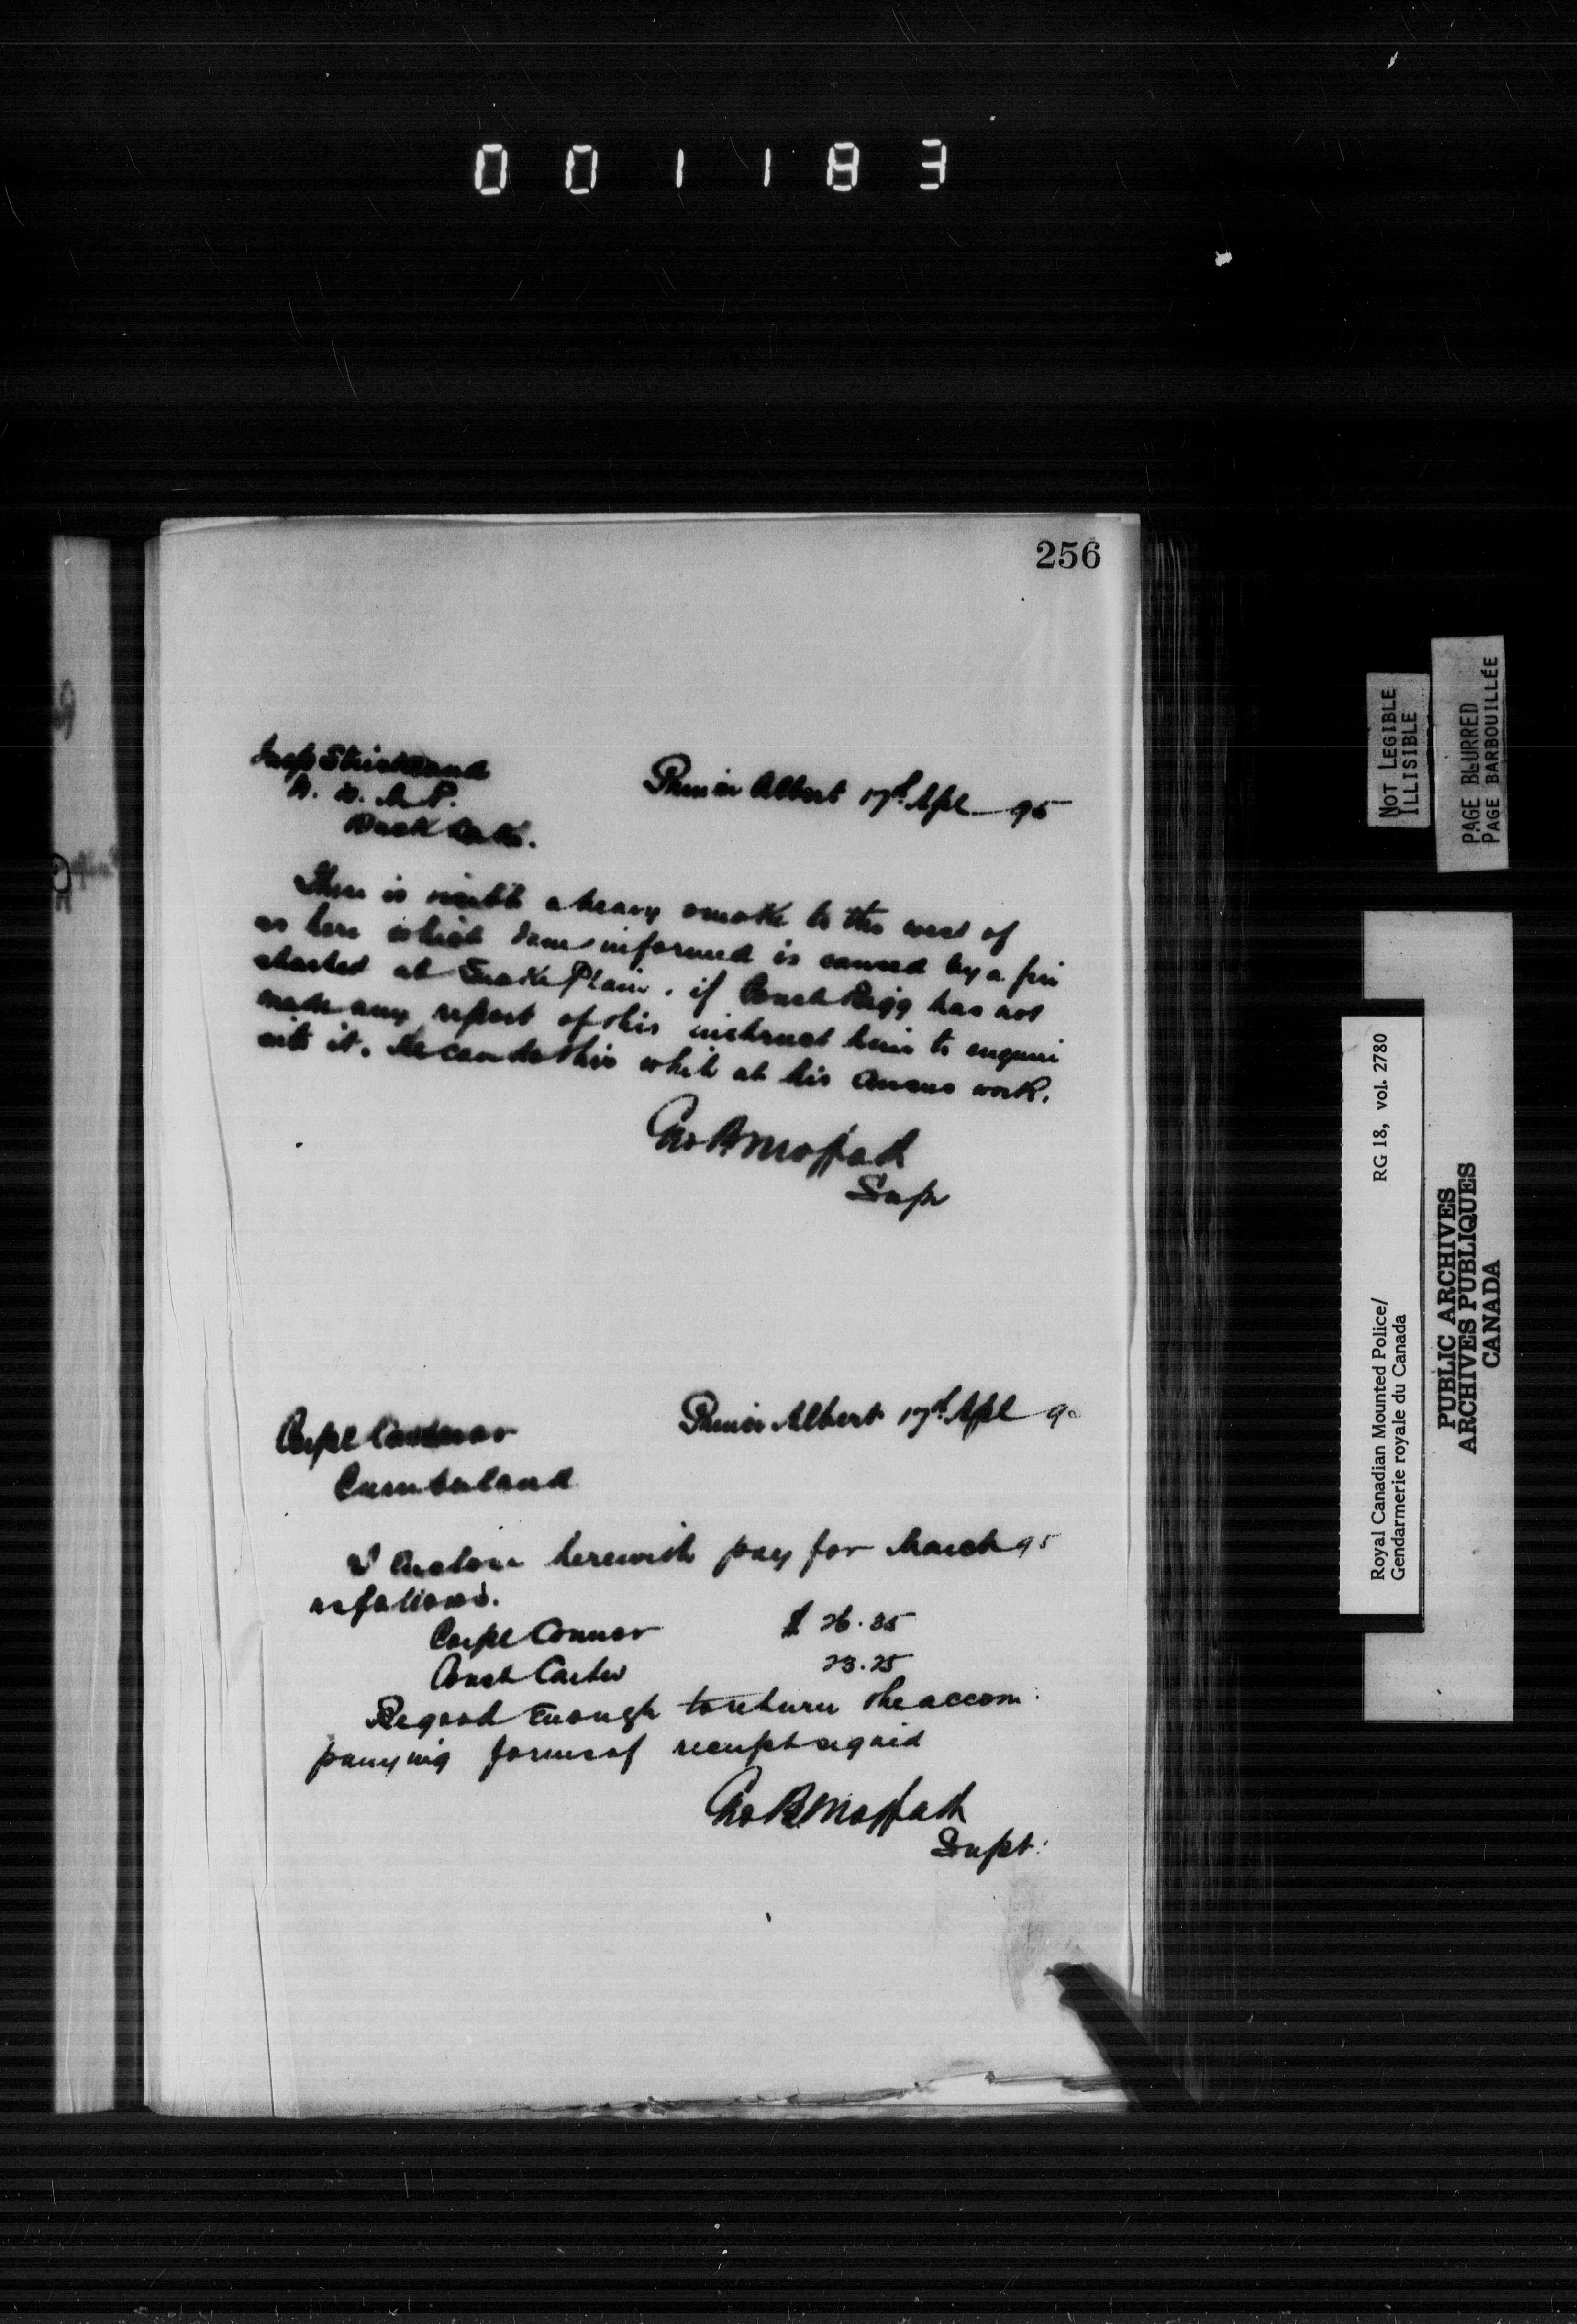 001183
256
Insp Strickland
N. W. M. P.
Duck Lake.
Prince Albert 17th Apl 95
There is visible a heavy smoke to the west of
us here which I am informed is caused by a fire
started at Snake Plain, if Const Rigg has not
made any report of this instruct him to enquire
into it. He can do this while at his Census work.
Geo B Moffatt
Supt
Corpl Connor
Cumberland
Prince Albert 17th Apl 9
I enclose herewith pay for March 95
as follows.
Corpl Connor $ 26.35
Const Carter 23.25
Be good enough to return the accom
panying forms of receipt signed
Geo B Moffatt
Supt.
NOT LEGIBLE
ILLISIBLE
PAGE BLURRED
PAGE BARBOUILLÉE
Royal Canadian Mounted Police/
Gendarmerie royale du Canada
RG 18, vol. 2780
PUBLIC ARCHIVES
ARCHIVES PUBLIQUES
CANADA